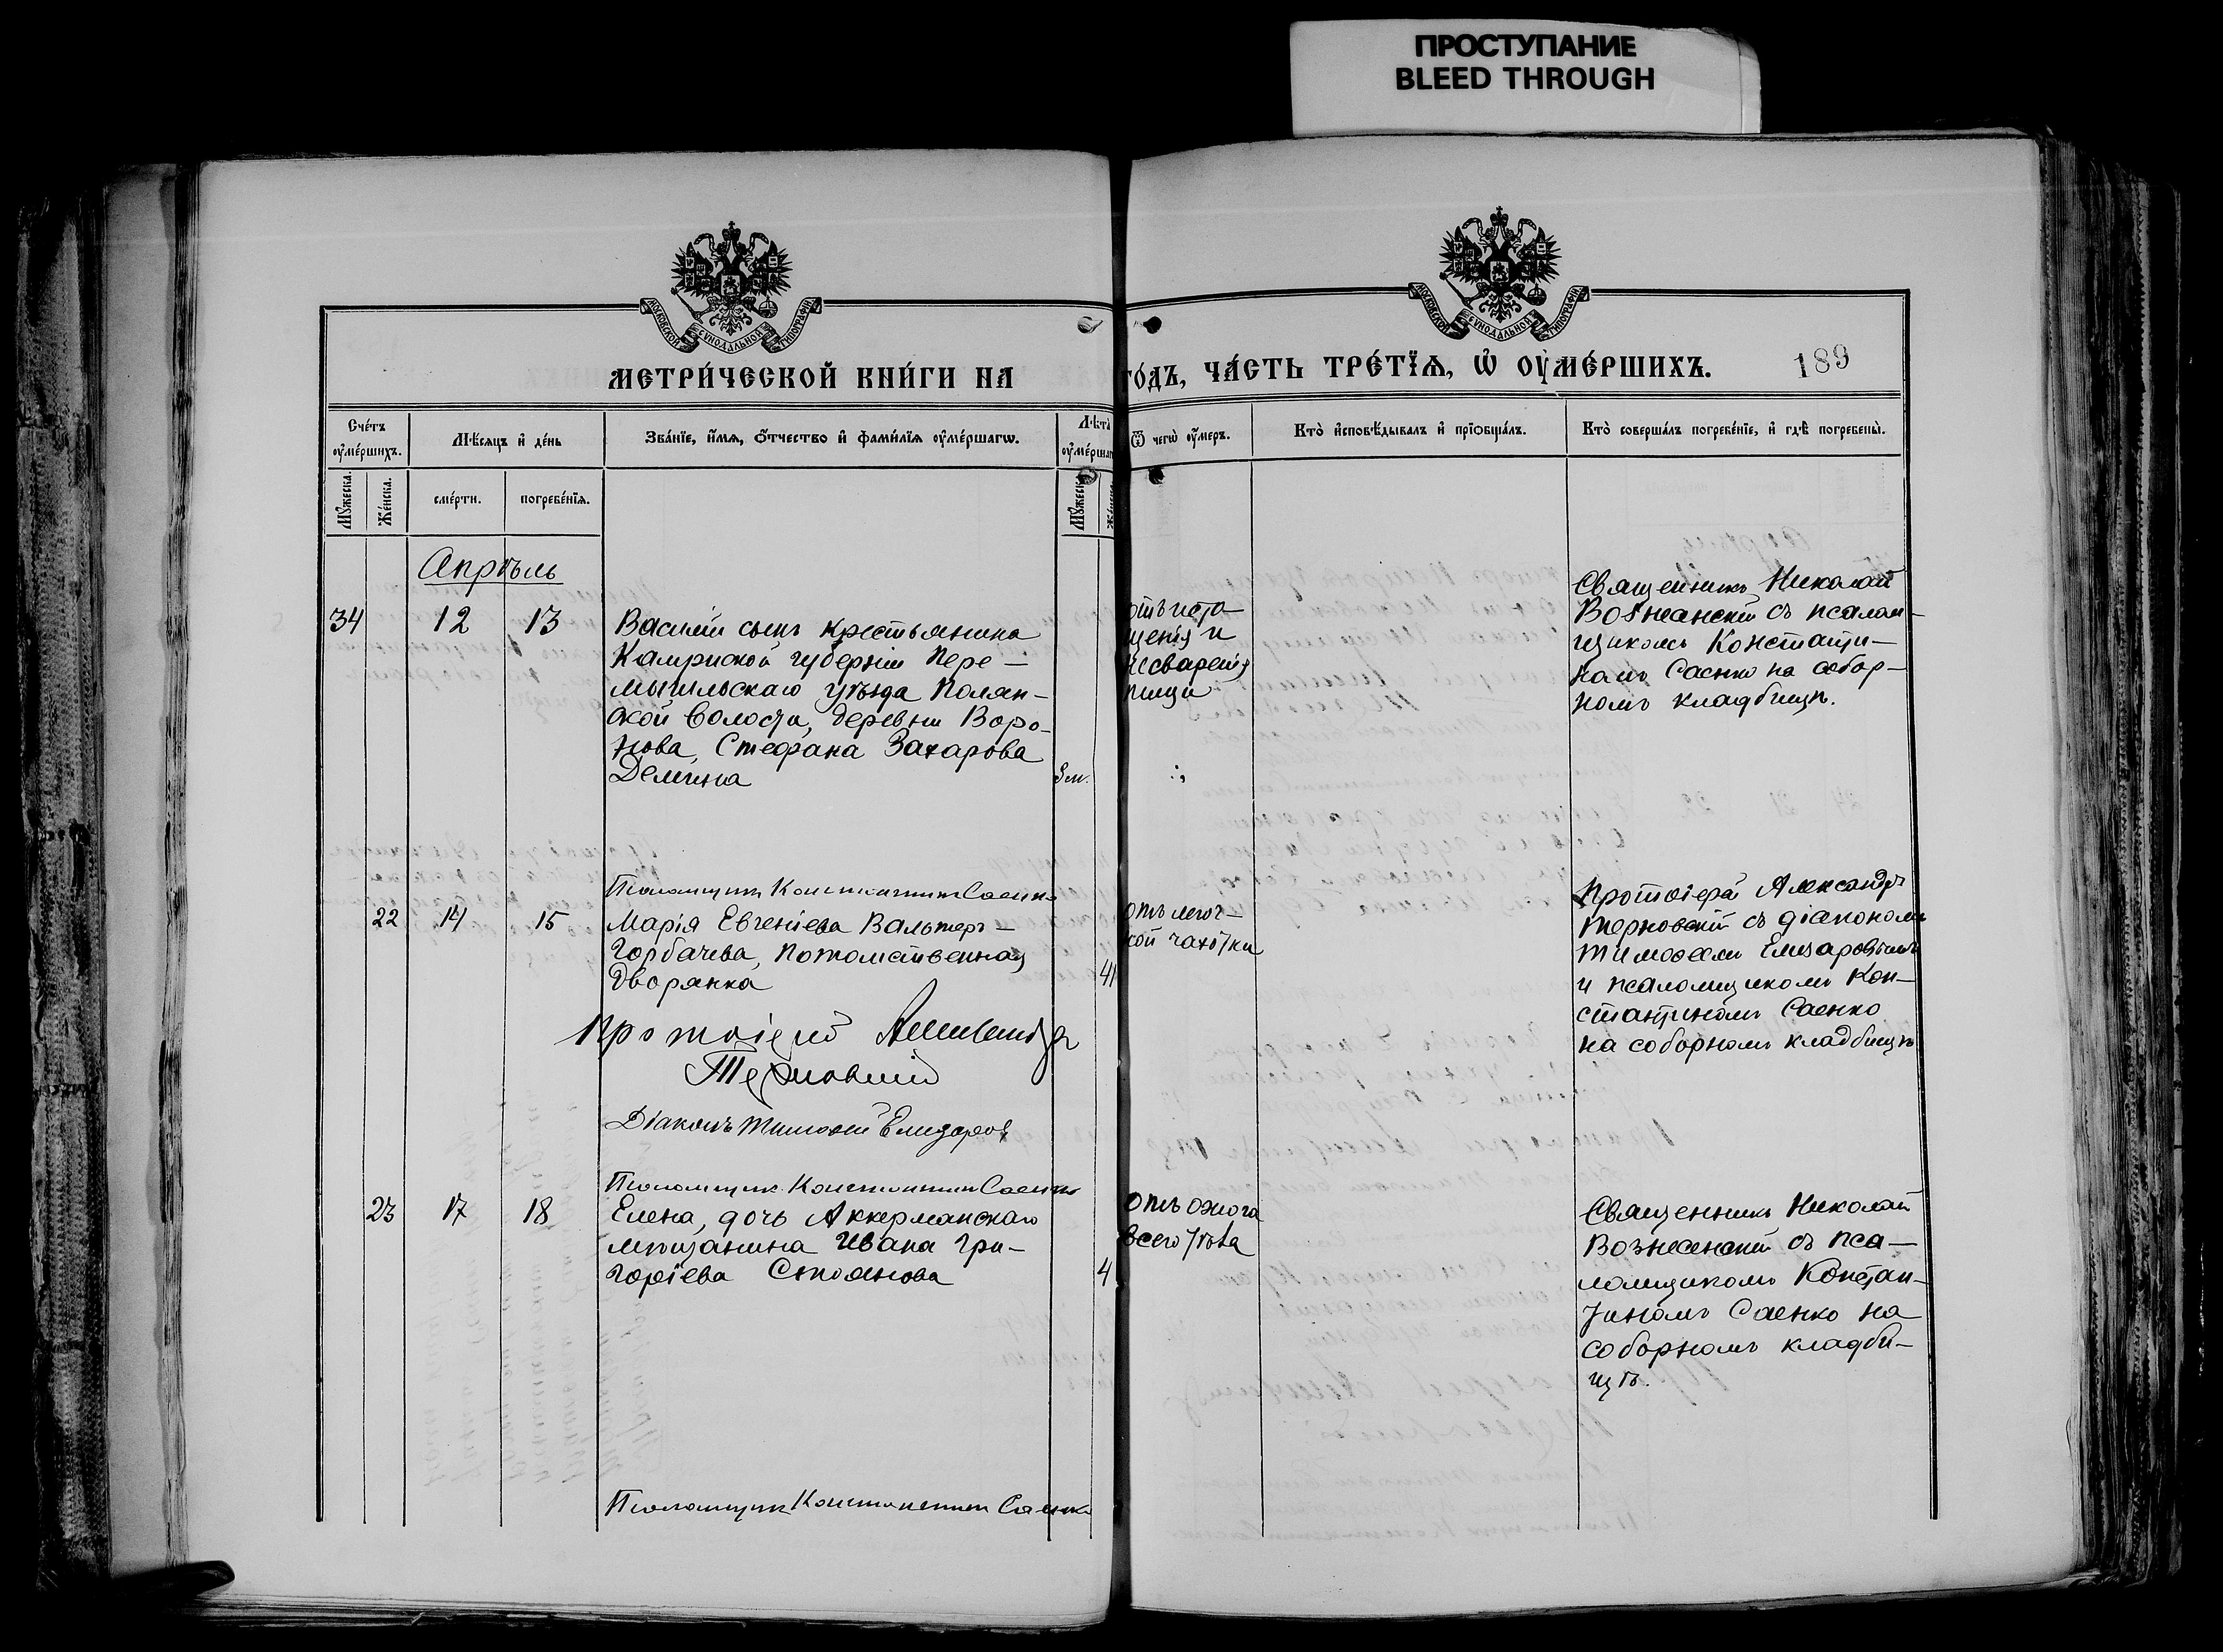 ПРОСТУПАНИЕ
BLEED THROUGH
МОСКОВСКОЙ СѴНОДАЛЬНОЙ ТИПОГРАФІИ
МОСКОВСКОЙ СѴНОДАЛЬНОЙ ТИПОГРАФІИ
МЕТРИ́ЧЕСКОЙ КНИ́ГИ НА
ГО́ДЪ, ЧА́СТЬ ТРЕ́ТЇѦ, Ѡ҆ ОУ҆МЕ́РШИХЪ.
189
Сче́тъ оу҆ме́ршихъ.
Мѣ́сяцъ и҆ де́нь
Зва́нїе, и҆́мя, ѻ҆́тчество и҆ фами́лїя оу҆ме́ршагѡ.
Лѣ́та оу҆ме́ршаг
Ѿ чегѡ̀ оу҆́меръ.
Кто̀ и҆сповѣ́дывалъ и҆ прїѡбща́лъ.
Кто̀ соверша́лъ погребе́нїе, и҆ гдѣ̀ погребены̀.
Мꙋ́жеска.
Же́нска.
сме́рти.
погребе́нїя.
Мꙋ́жеска.
Апрѣль
34
12
13
Василій сынъ крестьянина
Калужской губерніи Пере-
мышльскаго уѣзда Полян-
ской волости, деревни Воро-
нова, Стефана Захарова
Демина
м.
отъ исто-
щенія и
несваренія
пищи
Священникъ Николай
Вознесенскій съ псалом-
щикомъ Константи-
номъ Саенко на собор-
номъ кладбищѣ.
Псаломщикъ Константинъ Саенко
22
14
15
Марія Евгеніева Вальтеръ-
Горбачева, потомственная
дворянка
41
отъ легоч-
ной чахотки
Протоіерей Александръ
Терновскій съ діакономъ
Тимоѳеемъ Елизаровымъ
и псаломщикомъ Кон-
стантиномъ Саенко
на соборномъ кладбищѣ
Протоіерей Александръ
Терновскій
Діаконъ Тимоѳей Елизаровъ
Псаломщикъ Константинъ Саенко
23
17
18
Елена, дочь Аккерманскаго
мѣщанина Ивана Гри-
горіева Стоянова
4
отъ ожога
всего тѣла
Священникъ Николай
Вознесенскій съ пса-
ломщикомъ Констан-
тиномъ Саенко на
соборномъ кладби-
щѣ.
Псаломщикъ Константинъ Саенко